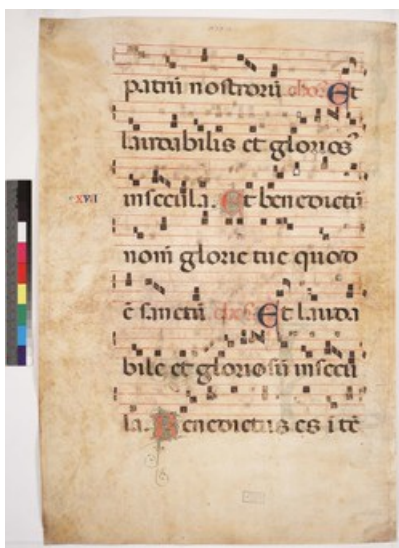 patrū nostrorū chorꝰ Et
laudabilis et gloriosꝰ
xviI
in secula. Et benedictū
nom̄ glorie tue quod
ē sanctū chorꝰ Et lauda
bile et gloriosū in secu
la. Benedictus es i tē